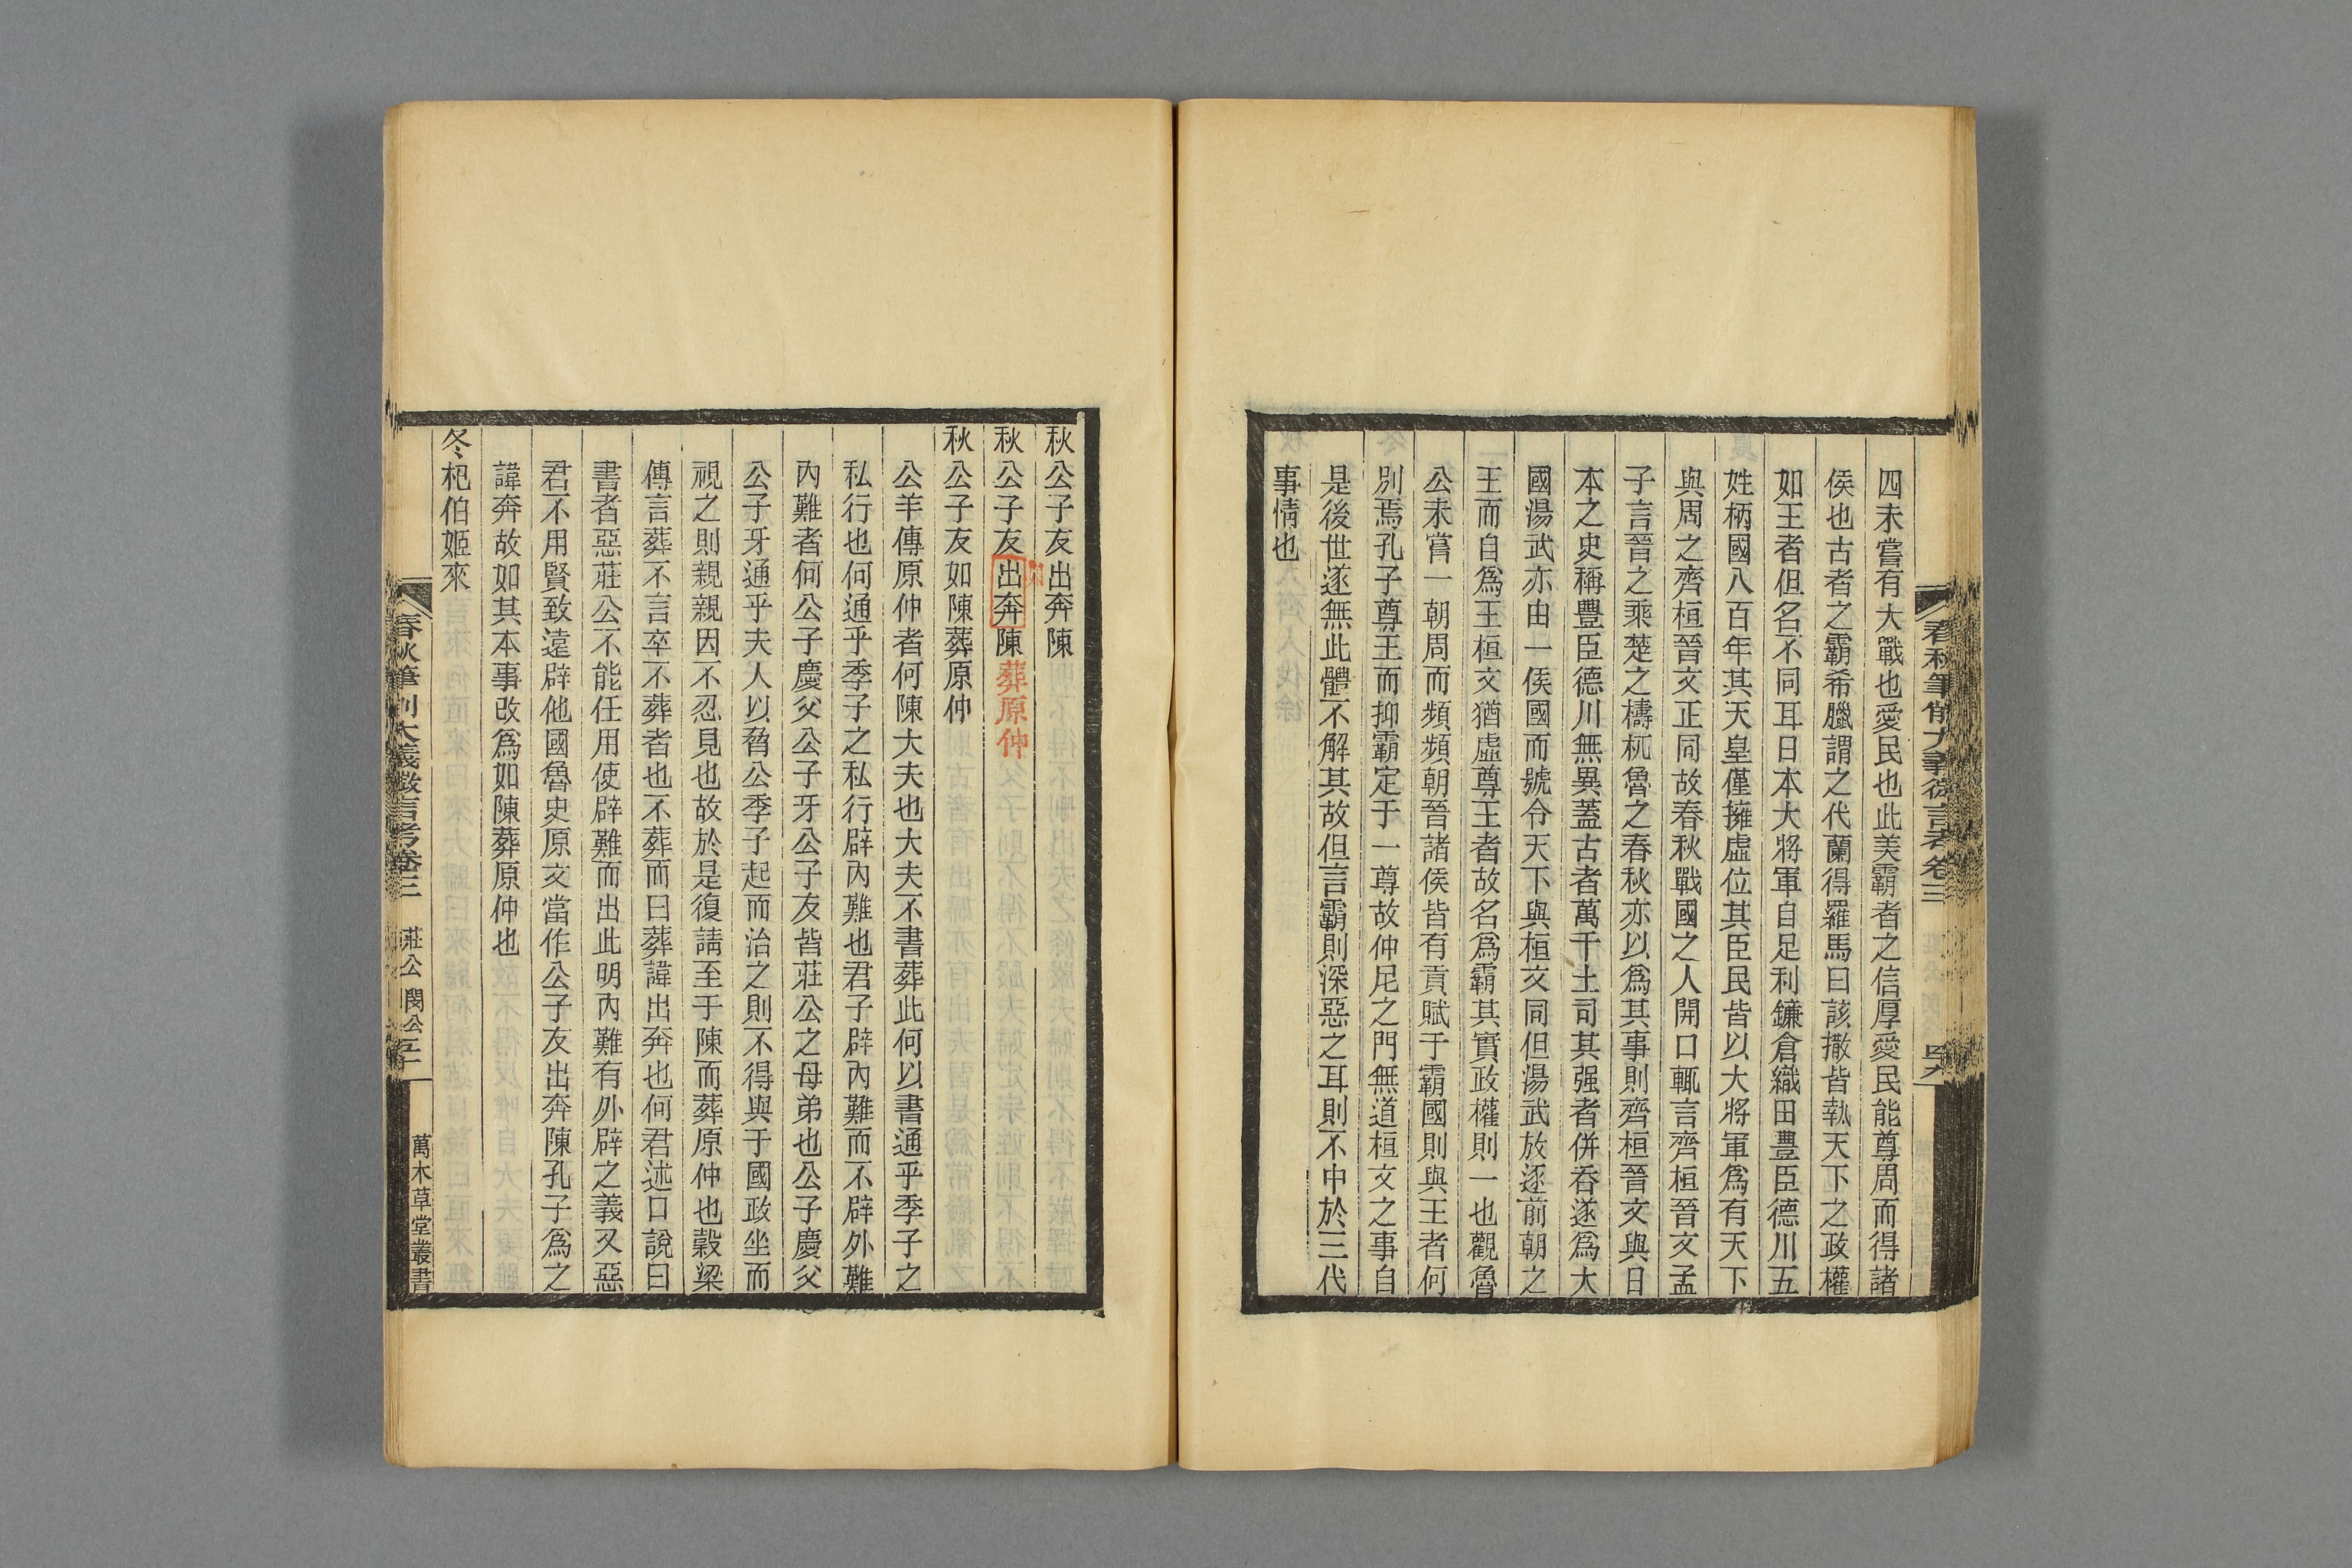 四未嘗有大戰也愛民也此美霸者之信厚愛民能尊周而得諸
侯也古者之霸希臘謂之代蘭得羅馬曰該撒皆執天下之政權
如王者但名不同耳日本大將軍自足利鐮倉織田豐臣德川五
姓柄國八百年其天皇僅擁虛位其臣民皆以大將軍爲有天下
與周之齊桓晉文正同故春秋戰國之人開口輒言齊桓晉文孟
子言晉之乘楚之檮杌魯之春秋亦以爲其事則齊桓晉文與日
本之史稱豐臣德川無異蓋古者萬千土司其强者併吞遂爲大
國湯武亦由一侯國而號令天下與桓文同但湯武放逐前朝之
王而自爲王桓文猶虛尊王者故名爲霸其實政權則一也觀魯
公未嘗一朝周而頻頻朝晉諸侯皆有貢賦于霸國則與王者何
別焉孔子尊王而抑霸定于一尊故仲尼之門無道桓文之事自
是後世遂無此體不解其故但言霸則深惡之耳則不中於三代
事情也
秋公子友出奔陳
秋公子友出奔陳葬原仲
如
秋公子友如陳葬原仲
公羊傳原仲者何陳大夫也大夫不書葬此何以書通乎季子之
私行也何通乎季子之私行辟內難也君子辟內難而不辟外難
內難者何公子慶父公子牙公子友皆莊公之母弟也公子慶父
公子牙通乎夫人以脅公季子起而治之則不得與于國政坐而
視之則親親因不忍見也故於是復請至于陳而葬原仲也穀梁
傳言葬不言卒不葬者也不葬而曰葬諱出奔也何君述口說曰
書者惡莊公不能任用使辟難而出此明內難有外辟之義又惡
君不用賢致遠辟他國魯史原文當作公子友出奔陳孔子爲之
諱奔故如其本事改爲如陳葬原仲也
冬杞伯姬來
春秋筆削大義微言考卷三 莊公 閔公 五十
萬木草堂叢書